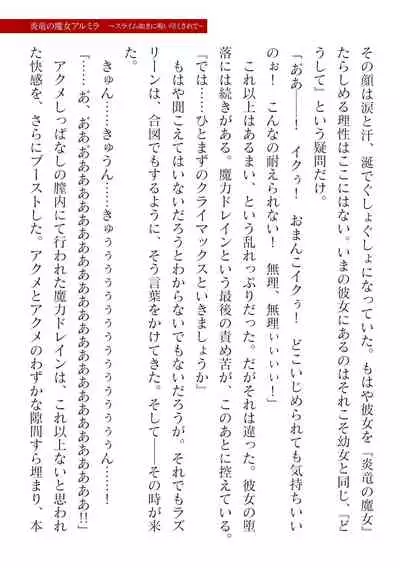 炎竜の魔女アルミラ　～スライム如きに吸い尽くされて～
その顔は涙と汗、涎でぐしょぐしょになっていた。もはや彼女を『炎竜の魔女』
たらしめる理性はここにはない。いまの彼女にあるのはそれこそ幼女と同じ、『ど
うして』という疑問だけ。
「あぁ――！　イクぅ！　おまんこイクぅ！　どこいじめられても気持ちいい
のぉ！　こんなの耐えられない！　無理、無理ぃぃぃぃ！」
これ以上はあるまい、という乱れっぷりだった。だがそれは違った。彼女の堕
落には続きがある。魔力ドレインという最後の責め苦が、このあとに控えている。
『では……ひとまずのクライマックスといきましょうか』
もはや聞こえてはいないだろうとわからないでもないだろうが。それでもラズ
リーンは、合図でもするように、そう言葉をかけてきた。そして――その時が来
た。
きゅん……きゅうん……きゅぅぅぅぅぅぅぅぅぅぅぅぅぅぅぅぅん……！
「……あ゛、あ゛あぢああああああああああああああああああああああ!!」
アクメしっぱなしの膣内にて行われた魔力ドレインは、これ以上ないと思われ
た快感を、さらにブーストした。アクメとアクメのわずかな隙間すら埋まり、本